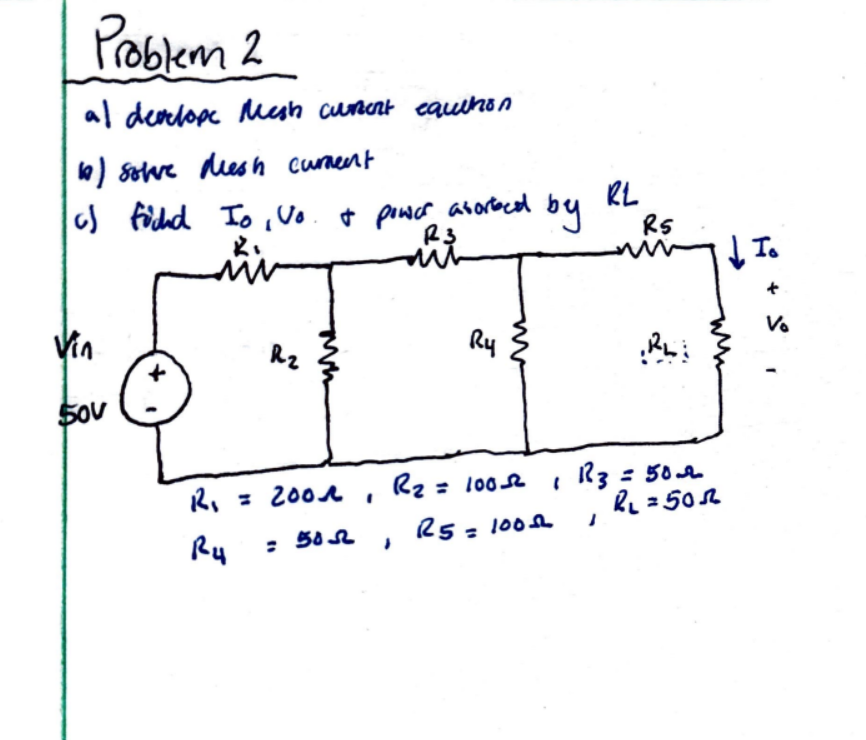 Problem 2
a) develope Mesh current equation
b) solve Mesh current
c) fidnd Io, Vo + power absorbed by RL
R1 R3 R5 Io
+
Vin R2 R4 RL Vo
+
-
50V
-
R1 = 200Ω , R2 = 100Ω , R3 = 50Ω
R4 = 50Ω , R5 = 100Ω , RL = 50Ω